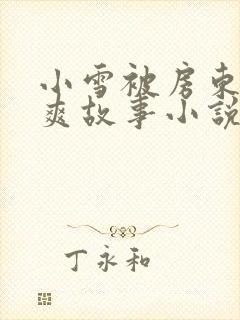 小雪被房东
爽故事小说
丁永和